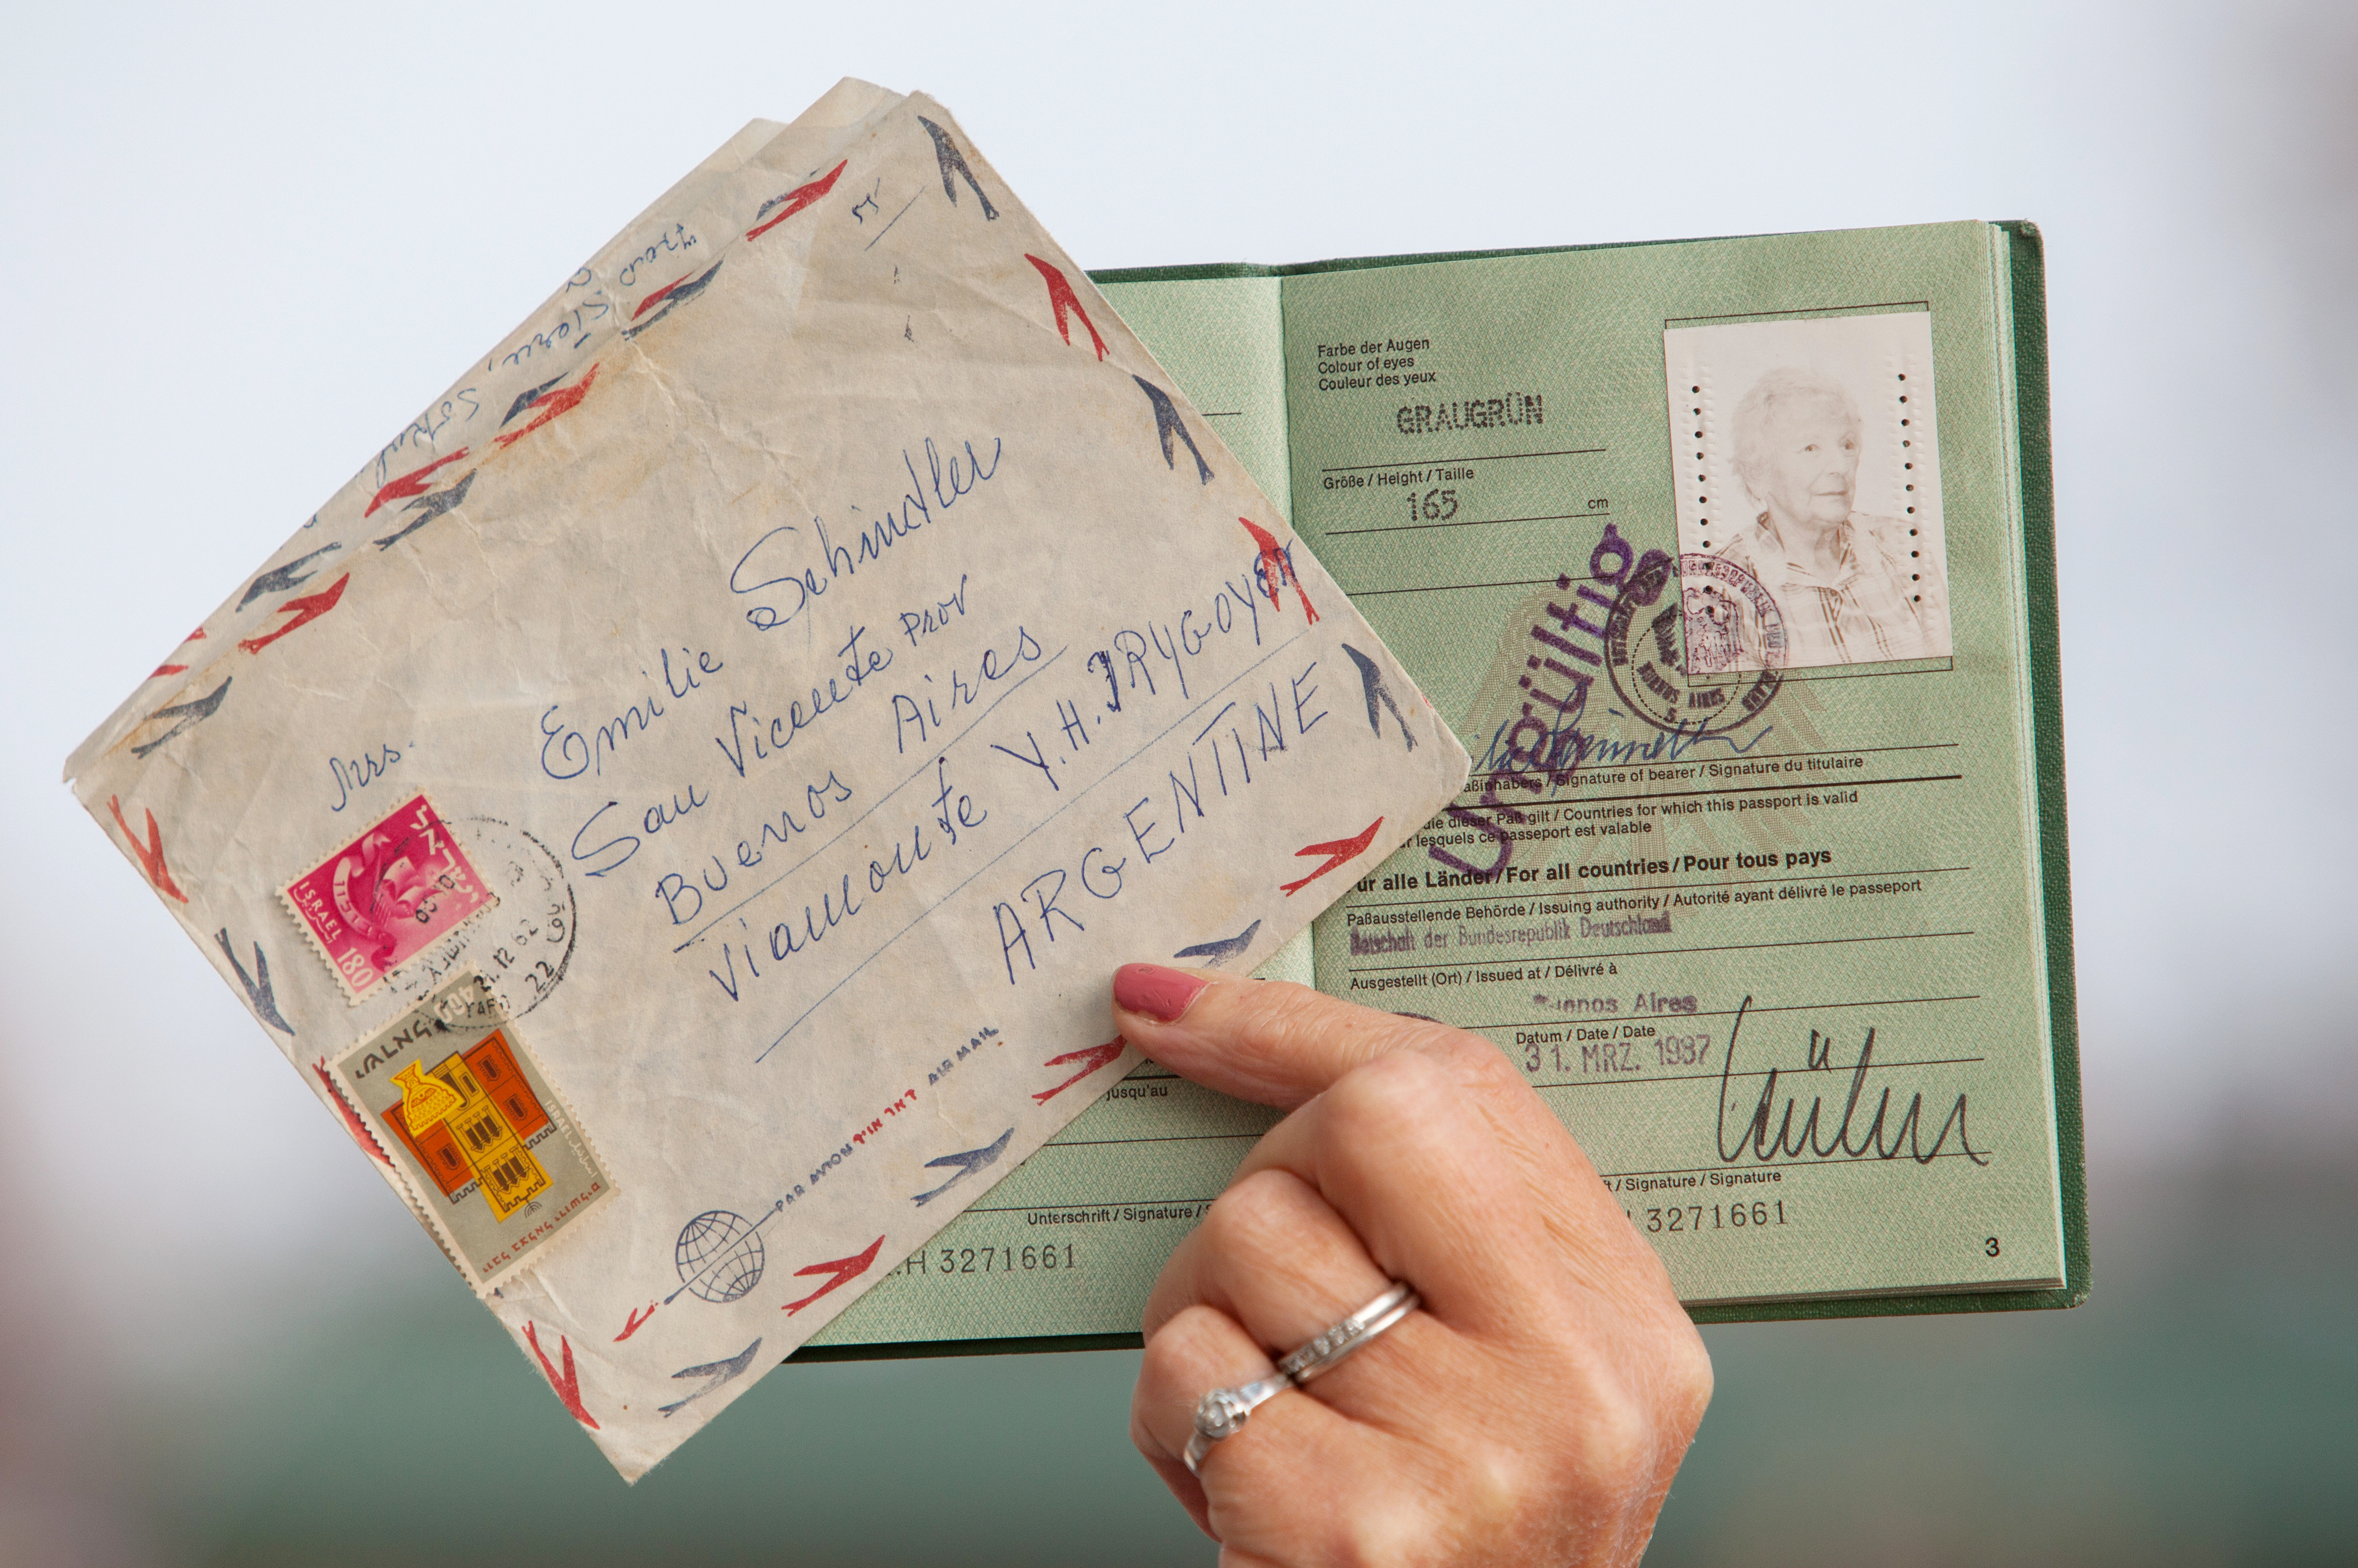 Mrs.
Emilie Schindler
San Vicente Prov
Buenos Aires
Viamonte Y.H. IRYGOYEN
ARGENTINE
ישראל
ISRAEL
180
21.12.62
22
ישראל
ISRAEL
PAR AVION דאר אויר AIR MAIL
Farbe der Augen
Colour of eyes
Couleur des yeux
GRAUGRÜN
Größe / Height / Taille
165 cm
Ungültig
BUENOS AIRES
aßinhabers / Signature of bearer / Signature du titulaire
die dieser Paß gilt / Countries for which this passport is valid
lesquels ce passeport est valable
ür alle Länder / For all countries / Pour tous pays
Paßausstellende Behörde / Issuing authority / Autorité ayant délivré le passeport
Botschaft der Bundesrepublik Deutschland
Ausgestellt (Ort) / Issued at / Délivré à
Buenos Aires
Datum / Date / Date
31. MRZ. 1987
/ Signature / Signature
3271661
3
jusqu'au
Unterschrift / Signature /
H 3271661